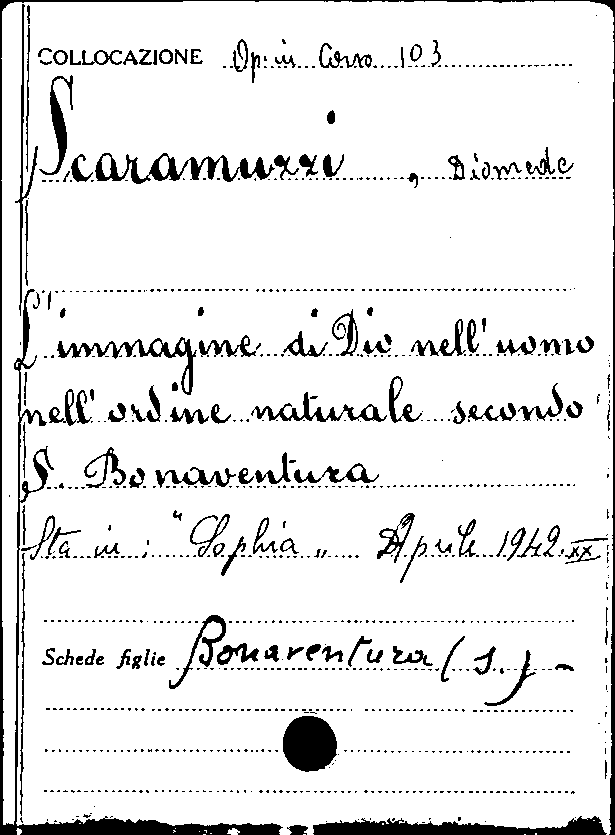 COLLOCAZIONE Op. in Corso 103
Scaramuzzi, Diomede
L'immagine di Dio nell'uomo
nell'ordine naturale secondo
S. Bonaventura
Sta in: "Sophia„ Aprile 1942.XX
Schede figlie Bonaventura (s.) -